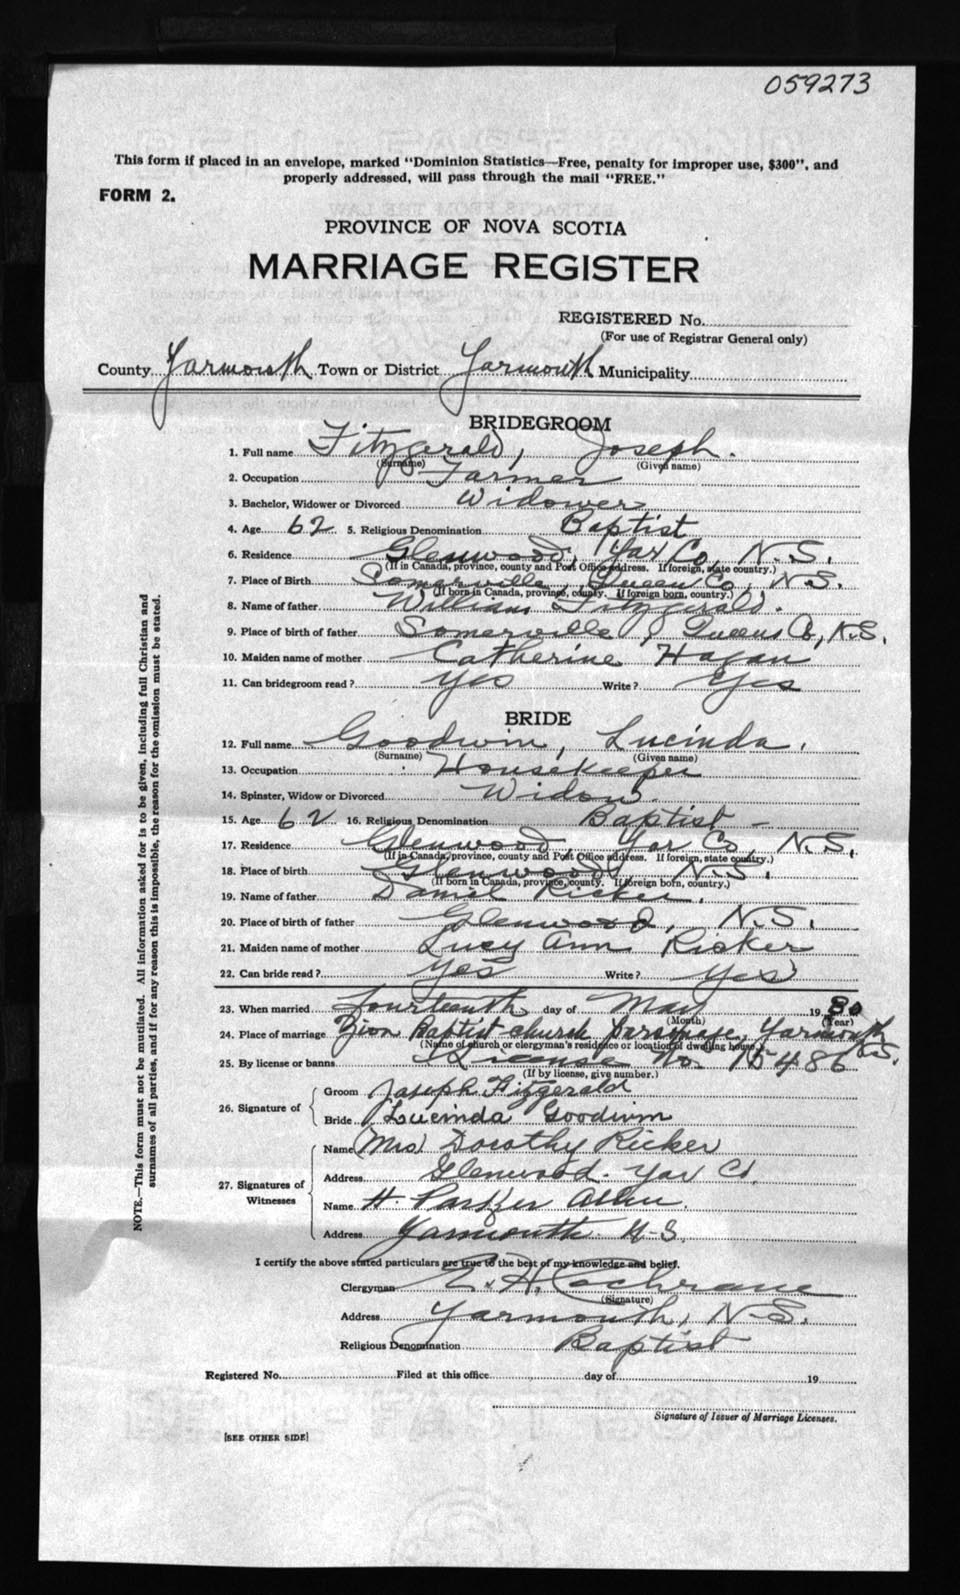 059273
This form if placed in an envelope, marked "Dominion Statistics—Free, penalty for improper use, $300", and
properly addressed, will pass through the mail "FREE."
FORM 2.
PROVINCE OF NOVA SCOTIA
MARRIAGE REGISTER
REGISTERED No.
(For use of Registrar General only)
County Yarmouth Town or District Yarmouth Municipality
BRIDEGROOM
1. Full name Fitzgerald, Joseph.
(Surname) (Given name)
2. Occupation Farmer
3. Bachelor, Widower or Divorced Widower
4. Age 62 5. Religious Denomination Baptist
6. Residence Glenwood, Yar Co, N.S.
(If in Canada, province, county and Post Office address. If foreign, state country.)
7. Place of Birth Somerville, Queen Co, N.S.
(If born in Canada, province, county. If foreign born, country.)
8. Name of father William Fitzgerald.
9. Place of birth of father Somerville, Queens Co, N.S.
10. Maiden name of mother Catherine Hagan
11. Can bridegroom read? Yes Write? Yes
BRIDE
12. Full name Goodwin, Lucinda.
(Surname) (Given name)
13. Occupation Housekeeper
14. Spinster, Widow or Divorced Widow.
15. Age 62 16. Religious Denomination Baptist
17. Residence Glenwood, Yar Co, N.S.
(If in Canada, province, county and Post Office address. If foreign, state country.)
18. Place of birth Glenwood, N.S.
(If born in Canada, province, county. If foreign born, country.)
19. Name of father Daniel Ricker.
20. Place of birth of father Glenwood, N.S.
21. Maiden name of mother Lucy Ann Ricker
22. Can bride read? Yes Write? Yes
23. When married fourteenth day of May 1930
(Month) (Year)
24. Place of marriage Zion Baptist church parsonage, Yarmouth, N.S.
(Name of church or clergyman's residence or location of dwelling house.)
25. By license or banns License No. 15486
(If by license, give number.)
26. Signature of
Groom Joseph Fitzgerald
Bride Lucinda Goodwin
27. Signatures of Witnesses
Name (Mrs) Dorothy Ricker
Address Glenwood. Yar Co.
Name H. Parker Allen.
Address Yarmouth N-S.
I certify the above stated particulars are true to the best of my knowledge and belief.
Clergyman E. H. Cochrane
(Signature)
Address Yarmouth, N-S.
Religious Denomination Baptist
Registered No. Filed at this office day of 19
Signature of Issuer of Marriage Licenses.
[SEE OTHER SIDE]
NOTE.—This form must not be mutilated. All information asked for is to be given, including full Christian and
surnames of all parties, and if for any reason this is impossible, the reason for the omission must be stated.